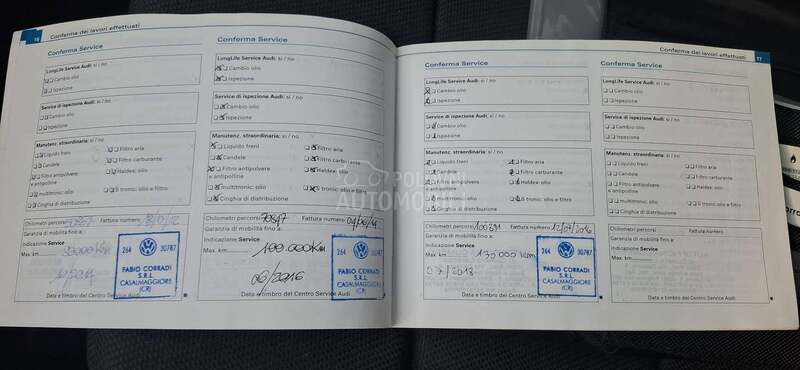 16 Conferma dei lavori effettuati
Conferma Service
LongLife Service Audi: si / no
Cambio olio
Ispezione
Service di ispezione Audi: si / no
Cambio olio
Ispezione
Manutenz. straordinaria: si / no
Liquido freni
Filtro aria
Candele
Filtro carburante
Filtro antipulvere
e antipolline
Haldex: olio
multitronic: olio
S tronic: olio e filtro
Cinghia di distribuzione
Chilometri percorsi
Fattura numero
Garanzia di mobilità fino a:
Indicazione Service
Max. km
264 30787
FABIO CORRADI
S.R.L.
CASALMAGGIORE
(CR)
Data e timbro del Centro Service Audi
Conferma Service
LongLife Service Audi: si / no
Cambio olio
Ispezione
Service di ispezione Audi: si / no
Cambio olio
Ispezione
Manutenz. straordinaria: si / no
Liquido freni
Filtro aria
Candele
Filtro carburante
Filtro antipulvere
e antipolline
Haldex: olio
multitronic: olio
S tronic: olio e filtro
Cinghia di distribuzione
Chilometri percorsi 70847 Fattura numero
Garanzia di mobilità fino a:
Indicazione Service
Max. km 100.000 Km
06/2016
264 30787
FABIO CORRADI
S.R.L.
CASALMAGGIORE
(CR)
Data e timbro del Centro Service Audi
Conferma dei lavori effettuati 17
Conferma Service
LongLife Service Audi: si / no
Cambio olio
Ispezione
Service di ispezione Audi: si / no
Cambio olio
Ispezione
Manutenz. straordinaria: si / no
Liquido freni
Filtro aria
Candele
Filtro carburante
Filtro antipulvere
e antipolline
Haldex: olio
multitronic: olio
S tronic: olio e filtro
Cinghia di distribuzione
Chilometri percorsi 100391 Fattura numero 12/07/2016
Garanzia di mobilità fino a:
Indicazione Service
Max. km 130000 Km
07/2018
264 30787
FABIO CORRADI
S.R.L.
CASALMAGGIORE
(CR)
Data e timbro del Centro Service Audi
Conferma Service
LongLife Service Audi: si / no
Cambio olio
Ispezione
Service di ispezione Audi: si / no
Cambio olio
Ispezione
Manutenz. straordinaria: si / no
Liquido freni
Filtro aria
Candele
Filtro carburante
Filtro antipulvere
e antipolline
Haldex: olio
multitronic: olio
S tronic: olio e filtro
Cinghia di distribuzione
Chilometri percorsi
Fattura numero
Garanzia di mobilità fino a:
Indicazione Service
Max. km
Data e timbro del Centro Service Audi